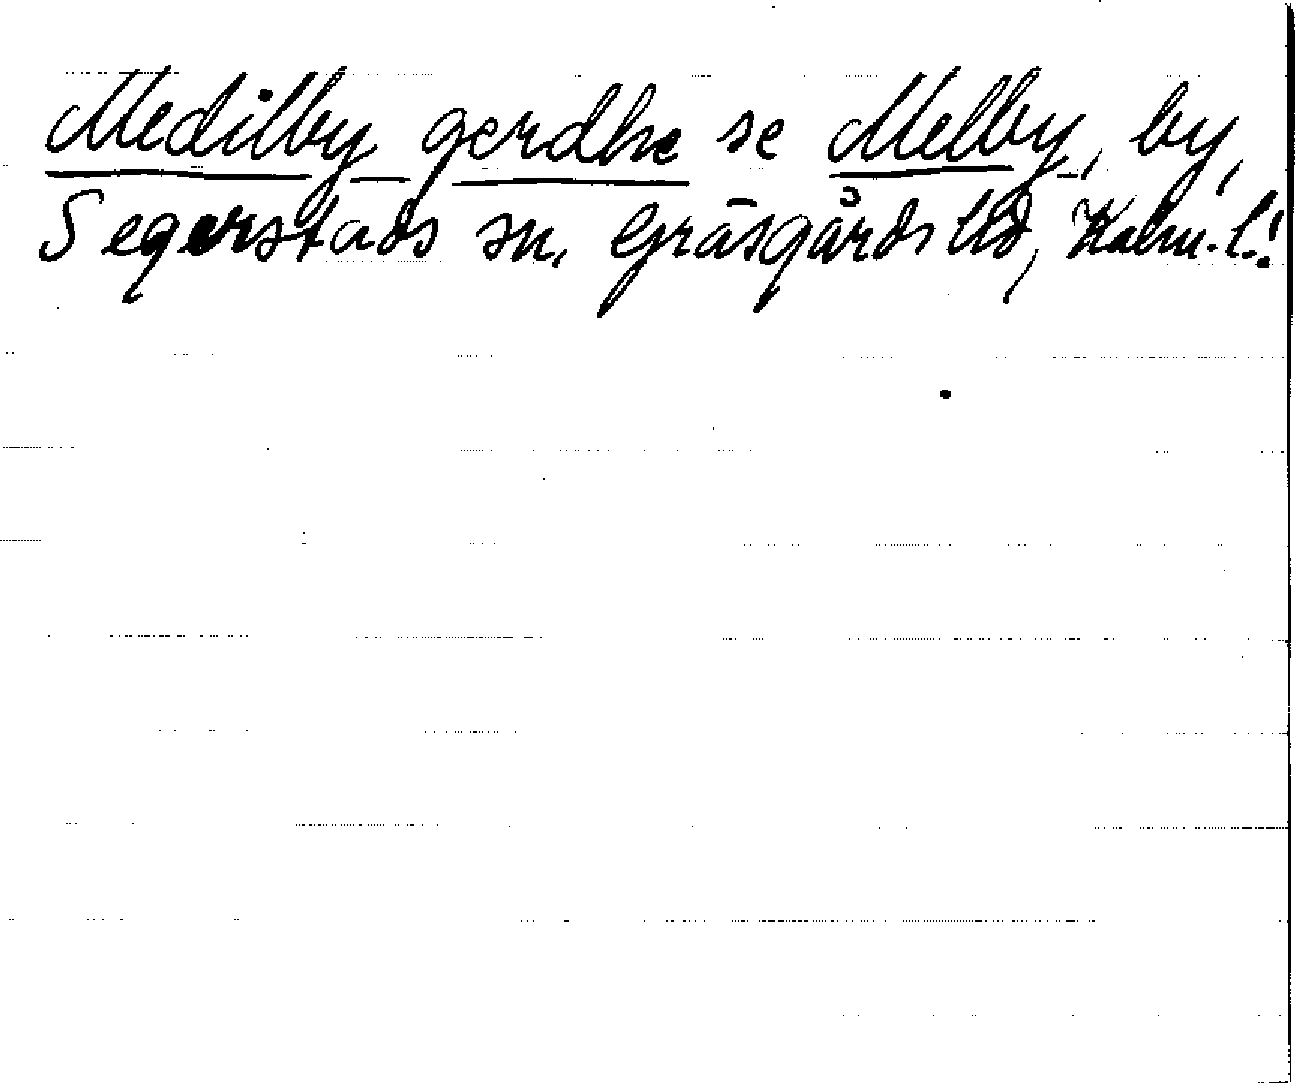 Medilby gerdhe se Melby, by,
Segerstads sn, Gräsgårds hd, Kalm. l.!